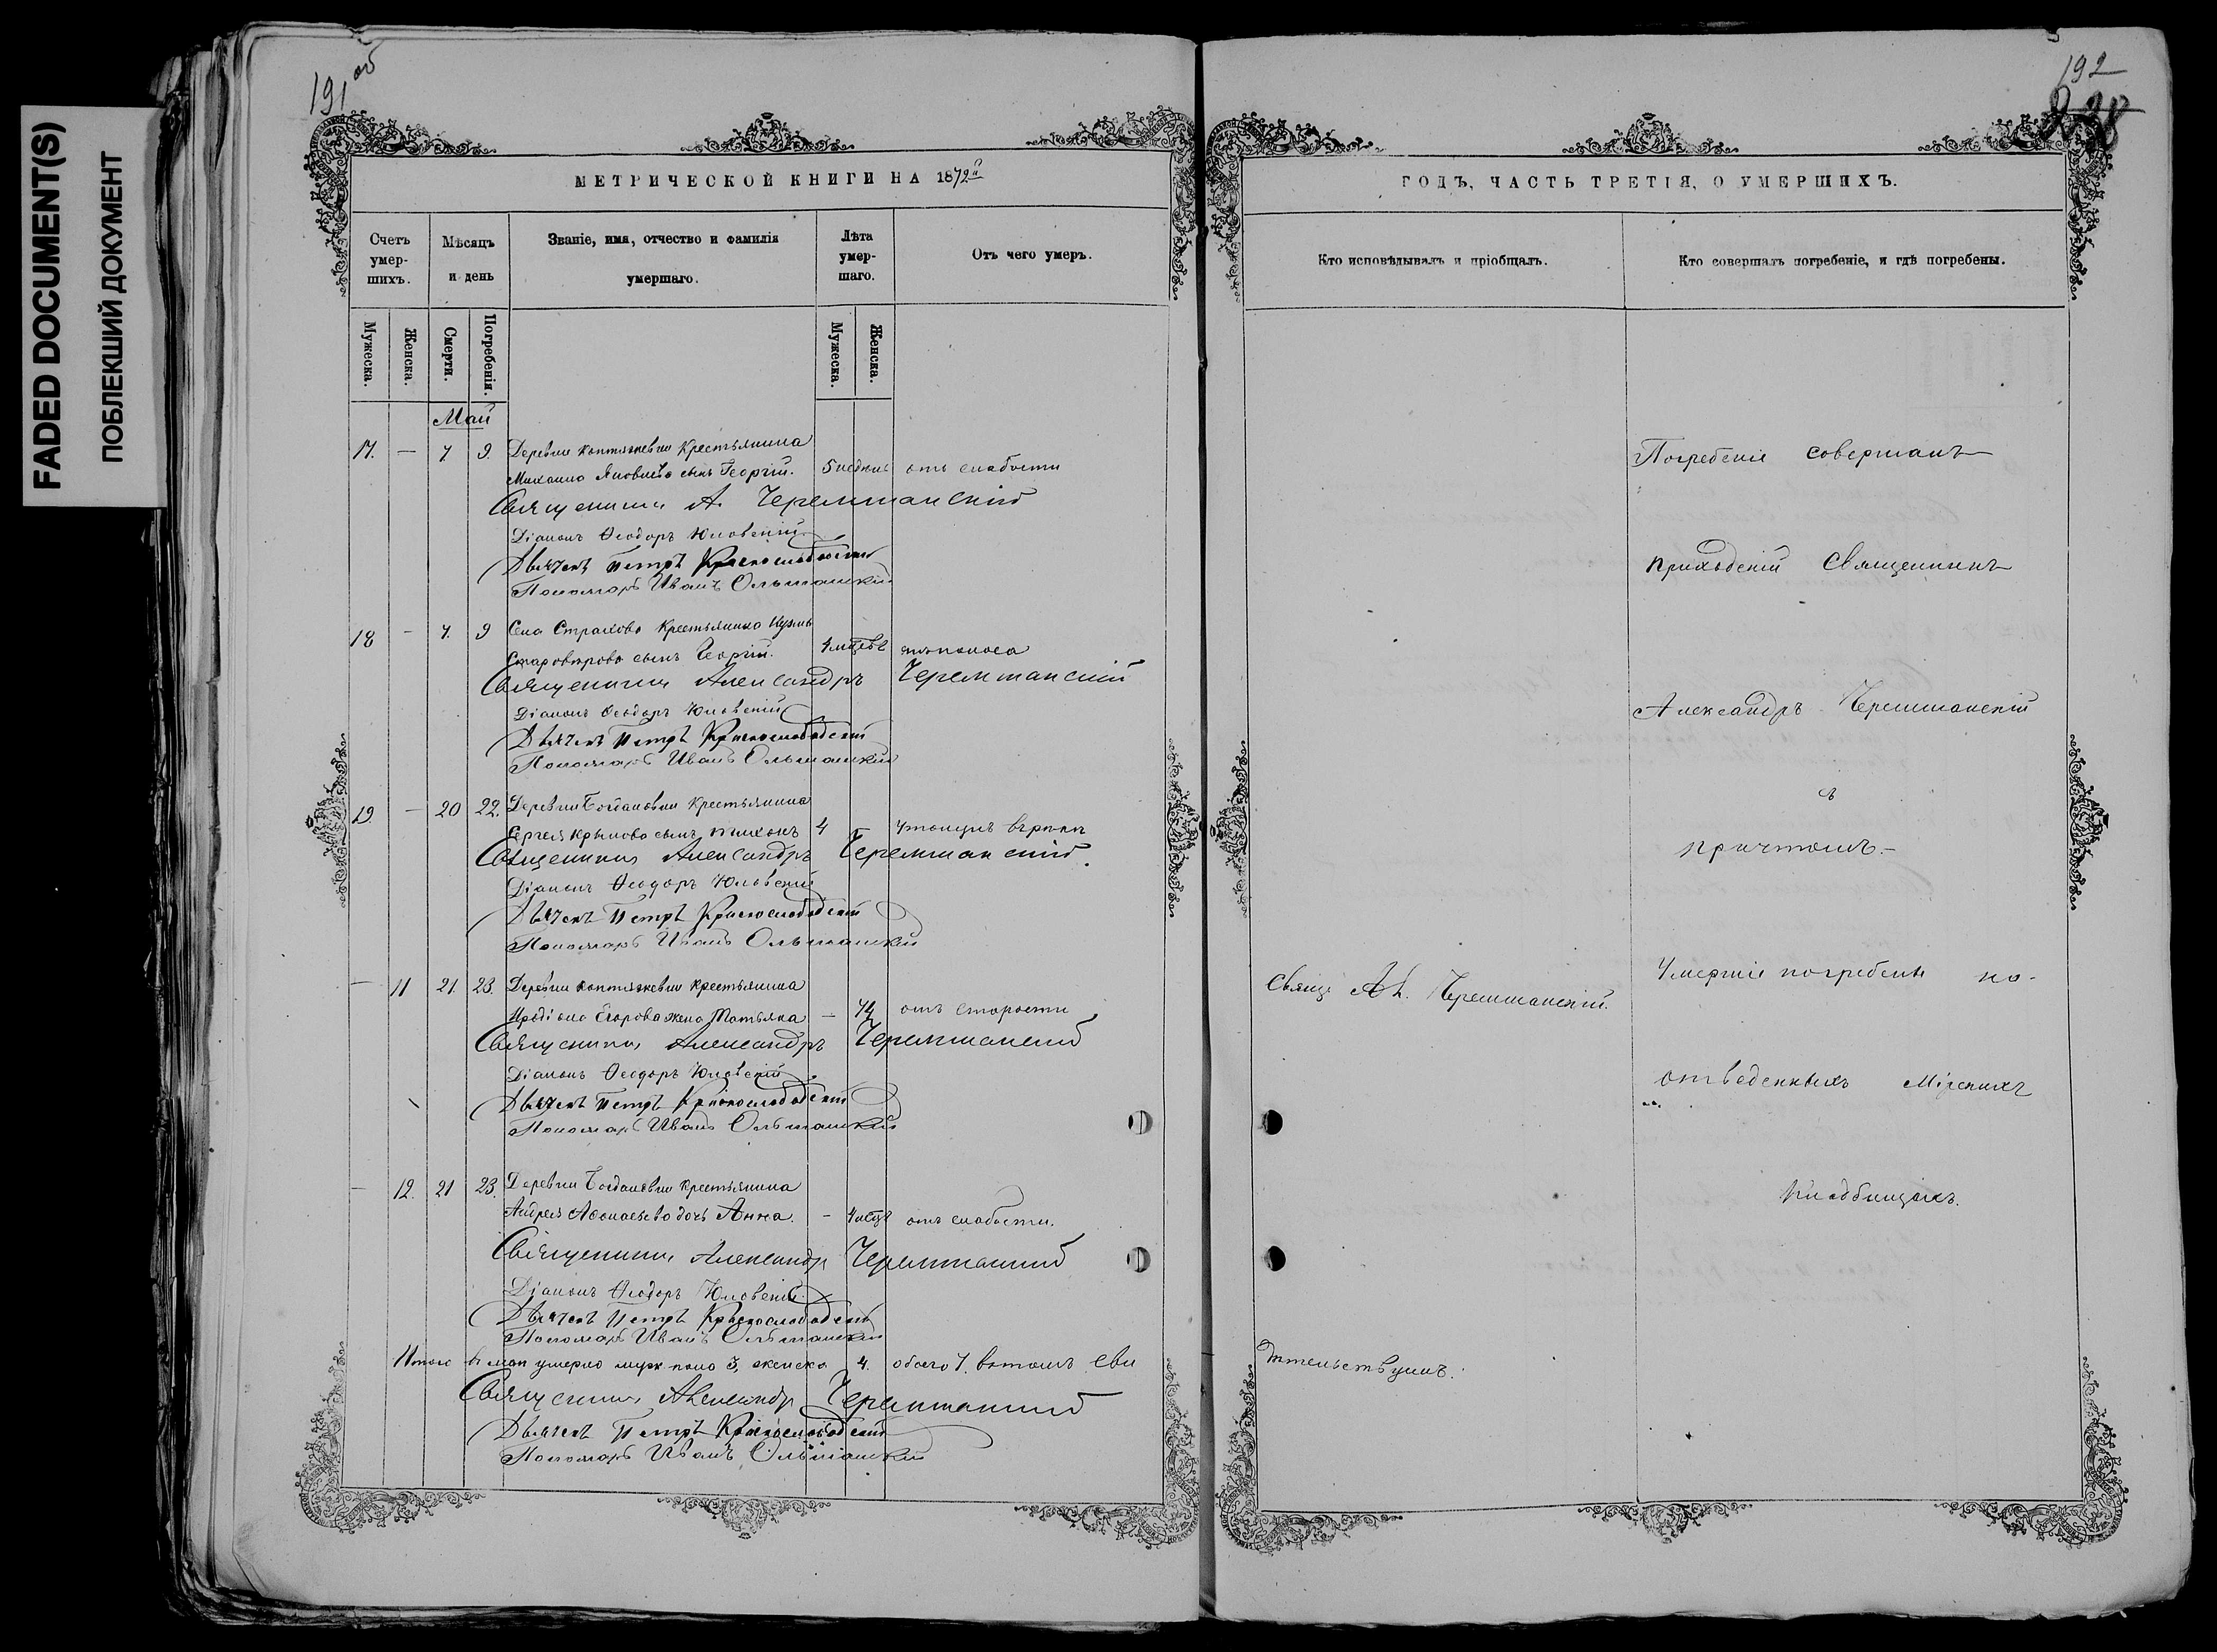 FADED DOCUMENT(S)
ПОБЛЕКШИЙ ДОКУМЕНТ
191 об
192
МЕТРИЧЕСКОЙ КНИГИ НА 1872й
Счетъ умер-шихъ.
Мѣсяцъ и день
Званіе, имя, отчество и фамилія умершаго.
Лѣта умер-шаго.
Отъ чего умеръ.
Мужеска.
Женска.
Смерти.
Погребенія.
Мужеска.
Женска.
Май
17. — 7 9. Деревни Крестьянина
Михаила сынъ Георгій. 5 недѣль отъ слабости
Священникъ А. Черемшанскій
Діаконъ Ѳеодоръ Юловскій
Дьячекъ Петръ Краснослободскій
Пономарь Иванъ Ольшанскій
18 — 7. 9 Села Страхова Крестьянина Кузмы
Старовѣрова сынъ Георгій. 4 мѣсцвъ отъ поноса
Священникъ Александръ Черемшанскій
Діаконъ Ѳеодоръ Юловскій
Дьячекъ Петръ Краснослободскій
Пономарь Иванъ Ольшанскій
19. — 20 22. Деревни Богдановки Крестьянина
Сергея Крылова сынъ Тихонъ 4 —
Священникъ Александръ Черемшанскій.
Діаконъ Ѳеодоръ Юловскій
Дьячекъ Петръ Краснослободскій
Пономарь Иванъ Ольшанскій
— 11 21. 23. Деревни Крестьянина
Иродіона Егорова жена — отъ старости
Священникъ Александръ Черемшанскій
Діаконъ Ѳеодоръ Юловскій
Дьячекъ Петръ Краснослободскій
Пономарь Иванъ Ольшанскій
— 12. 21 23. Деревни Богдановки Крестьянина
Андрея Аѳонасьева дочь Анна. — отъ слабости.
Священникъ Александръ Черемшанскій
Діаконъ Ѳеодоръ Юловскій
Дьячекъ Петръ Краснослободскій
Пономарь Иванъ Ольшанскій
Итого въ маи умерло муж пола 3, женска 4. обоего 7. въ томъ сви
Священникъ Александръ Черемшанскій
Дьячекъ Петръ Краснослободскій
Пономарь Иванъ Ольшанскій
ГОДЪ, ЧАСТЬ ТРЕТІЯ, О УМЕРШИХЪ.
Кто исповѣдывалъ и пріобщалъ.
Кто совершалъ погребеніе, и гдѣ погребены.
Погребеніе совершалъ
приходскій Священникъ
Александръ Черемшанскій
съ
причтомъ.—
Свящ: Ал. Черемшанскій.
Умершіе погребены на-
отведенныхъ Мірскихъ
Кладбищахъ.
дѣтельствуемъ.